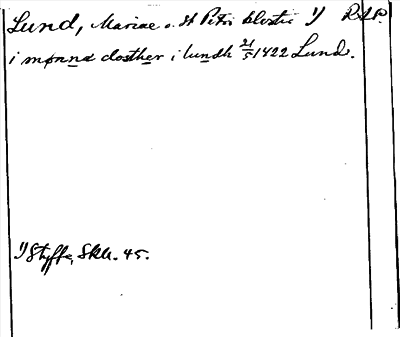 Lund, Mariae o. St Petri kloster 1) R.A.P.
i mønna closther i lundh 21/5 1422 Lund.
1) Styffe, SkU. 45.